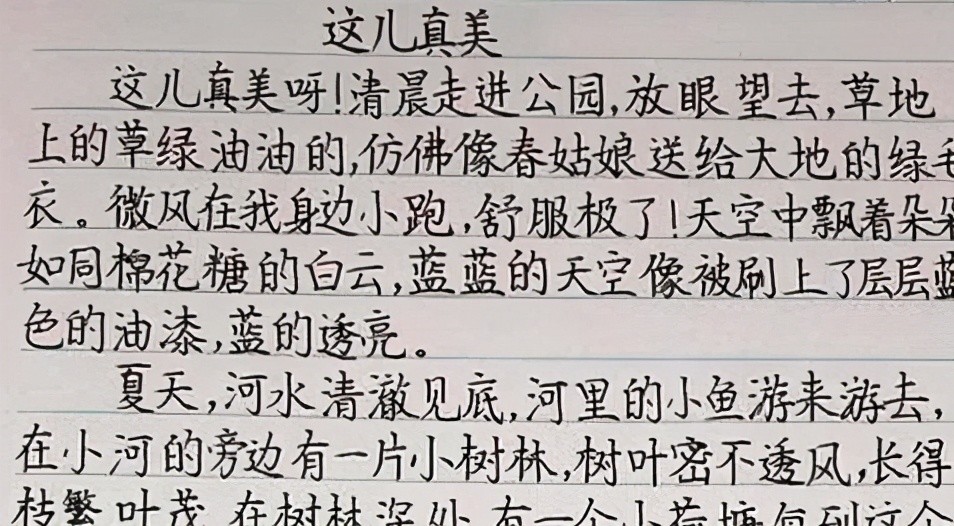 这儿真美
这儿真美呀!清晨走进公园,放眼望去,草地
上的草绿油油的,仿佛像春姑娘送给大地的绿毛
衣。微风在我身边小跑,舒服极了!天空中飘着朵朵
如同棉花糖的白云,蓝蓝的天空像被刷上了层层蓝
色的油漆,蓝的透亮。
夏天,河水清澈见底,河里的小鱼游来游去,
在小河的旁边有一片小树林,树叶密不透风,长得
枝繁叶茂,在树林深处,有一个小荷塘,每到这个